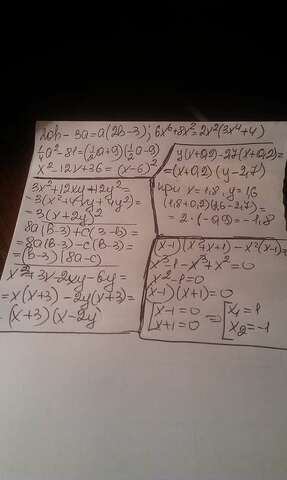 2ab - 3a = a(2b-3); 6x⁶+8x²=2x²(3x⁴+4)
¼a²-81=(½a+9)(½a-9)
x²-12x+36=(x-6)²
3x²+12xy+12y²=
-3(x²+4xy+4y²)=
-3(x+2y)²
8a(b-3)+c(3-b)=
=8a(b-3)-c(b-3)=
=(b-3)(8a-c)
x²+3x-2xy-6y=
=x(x+3)-2y(x+3)=
-(x+3)(x-2y)
y(x+0,2)-2,7(x+0,2)=
=(x+0,2)(y-2,7)
при x=1,8. y=1,6
(1,8+0,2)(1,6-2,7)=
=2·(-0,9)=-1,8
(x-1)(x²+x+1)-x²(x-1)=
x³-1-x³+x²=0
x²-1=0
(x-1)(x+1)=0
[x-1=0 ⇒ [x₁=1
[x+1=0 [x₂=-1